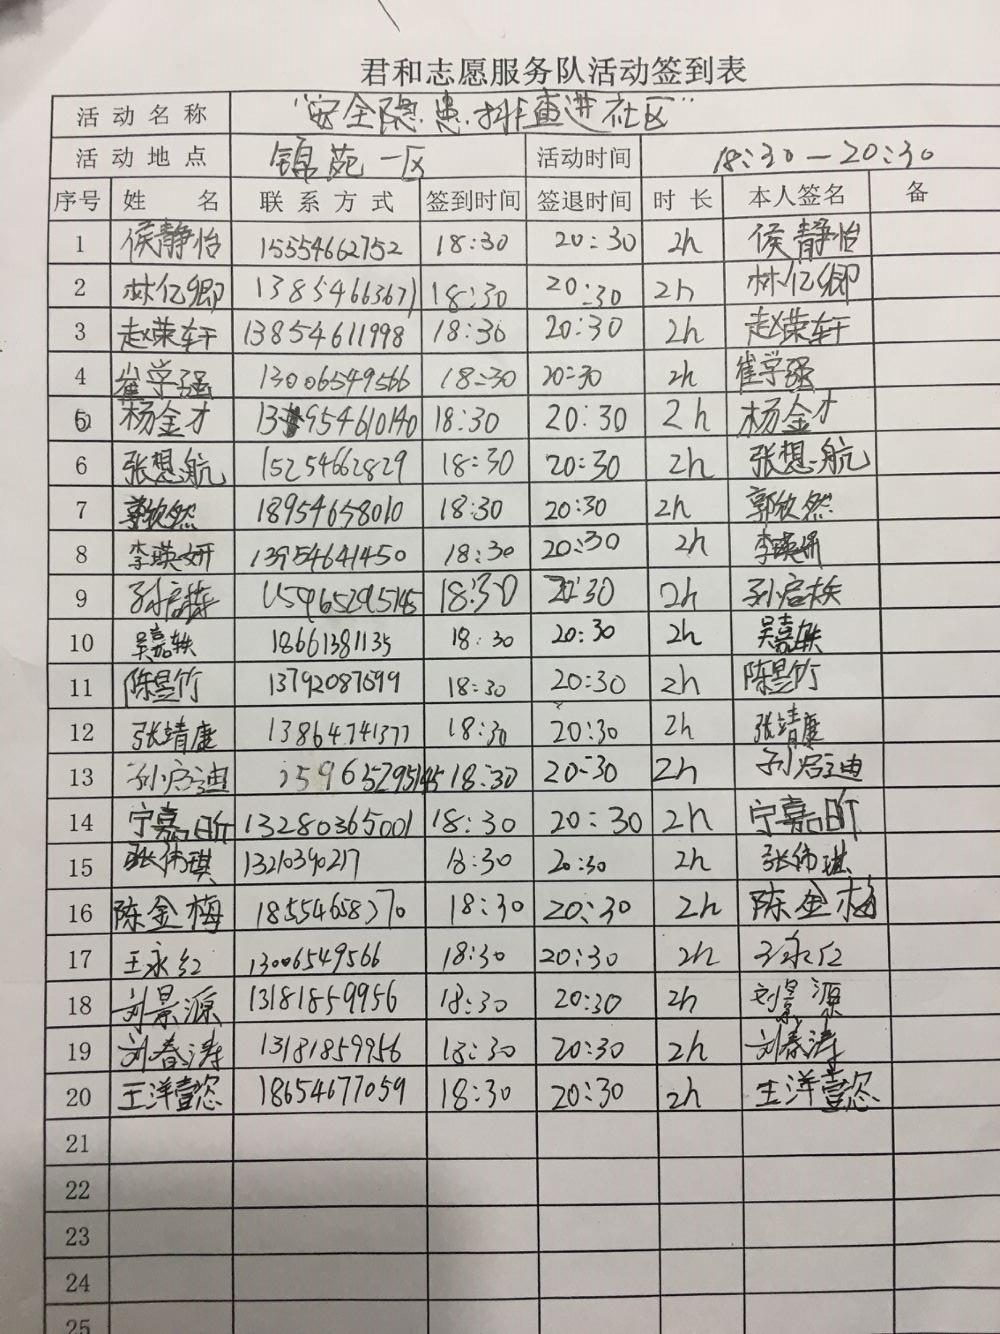 君和志愿服务队活动签到表
活动名称 "安全隐患排查进社区"
活动地点 锦苑一区 活动时间 18:30—20:30
序号 姓名 联系方式 签到时间 签退时间 时长 本人签名 备
1 侯静怡 15554662752 18:30 20:30 2h 侯静怡
2 林亿卿 13854663671 18:30 20:30 2h 林亿卿
3 赵荣轩 13854611998 18:30 20:30 2h 赵荣轩
4 崔学强 13006549566 18:30 20:30 2h 崔学强
5 杨金才 13954610140 18:30 20:30 2h 杨金才
6 张想航 15254662829 18:30 20:30 2h 张想航
7 郭欣然 18954658010 18:30 20:30 2h 郭欣然
8 李瑛妍 13954641450 18:30 20:30 2h 李瑛妍
9 孙启 15965295145 18:30 20:30 2h 孙启
10 吴嘉轶 18661381135 18:30 20:30 2h 吴嘉轶
11 陈昱竹 13792087699 18:30 20:30 2h 陈昱竹
12 张靖康 13864741377 18:30 20:30 2h 张靖康
13 孙启迪 15965295145 18:30 20:30 2h 孙启迪
14 宁嘉昕 13280365001 18:30 20:30 2h 宁嘉昕
15 张伟琪 13210390217 18:30 20:30 2h 张伟琪
16 陈金梅 18554658770 18:30 20:30 2h 陈金梅
17 王永红 13006549566 18:30 20:30 2h 王永红
18 刘景源 13181859956 18:30 20:30 2h 刘景源
19 刘春涛 13181859956 18:30 20:30 2h 刘春涛
20 王洋壹恣 18654677059 18:30 20:30 2h 王洋壹恣
21
22
23
24
25